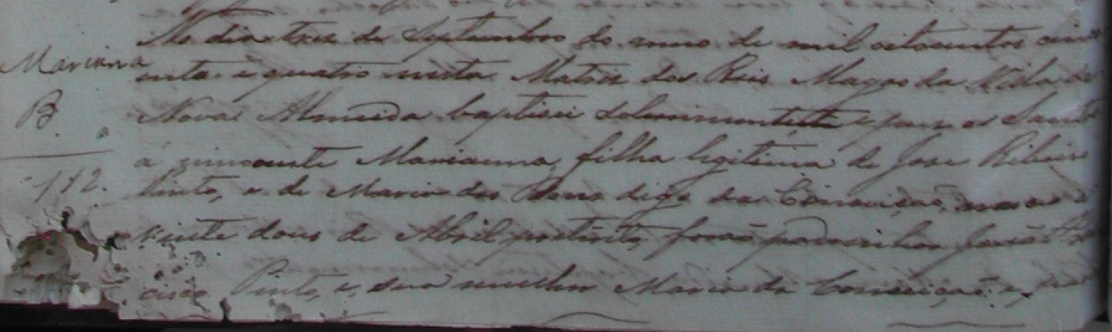 No dia tres de Septembro do anno de mil oitocentos cinco
Marianna
enta e quatro nesta Matris dos Reis Magos da Villa de
B.
Nova Almeida baptisei solemnemente e pus os Santos
a innocente Marianna, filha legitima de Jose Ribeiro
112.
Pinto, e de Maria das digo da Conceição, nasceo a
vinte dous de Abril forão padrinhos
Pinto, e sua mulher Maria da Conceição, e, para